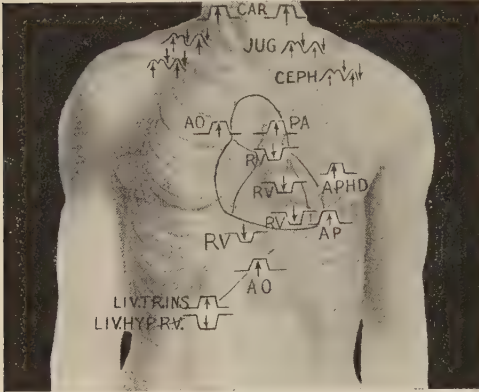 CAR
JUG
CEPH
AO PA
RV
APHD
RV
RV AP
RV
AO
LIV.TR.INS
LIV.HYP.R.V.